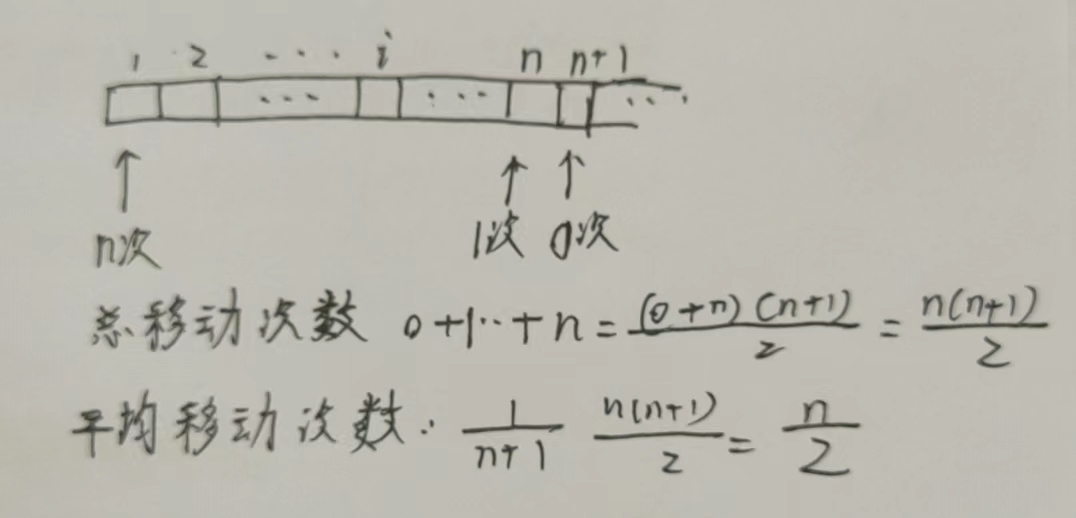 1 2 ... i n n+1
... ... ...
n次 1次 0次
总移动次数 0+1..+n=(0+n)(n+1)/2=n(n+1)/2
平均移动次数. 1/n+1 n(n+1)/2=n/2